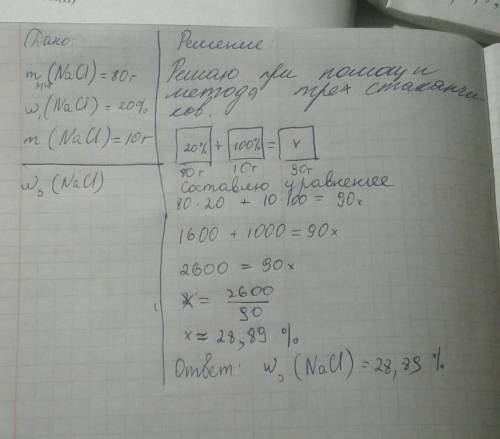 Дано:
m р-ра (NaCl) = 80 г
w₁ (NaCl) = 20%
m (NaCl) = 10 г
w₃ (NaCl)
Решение:
Решаю при помощи
метода трех стаканчи-
ков.
20% + 100% = x
80 г 10 г 90 г
Составлю уравнение
80 · 20 + 10 · 100 = 90x
1600 + 1000 = 90x
2600 = 90x
x = 2600/90
x ≈ 28,89 %
Ответ: w₃ (NaCl) = 28,89 %